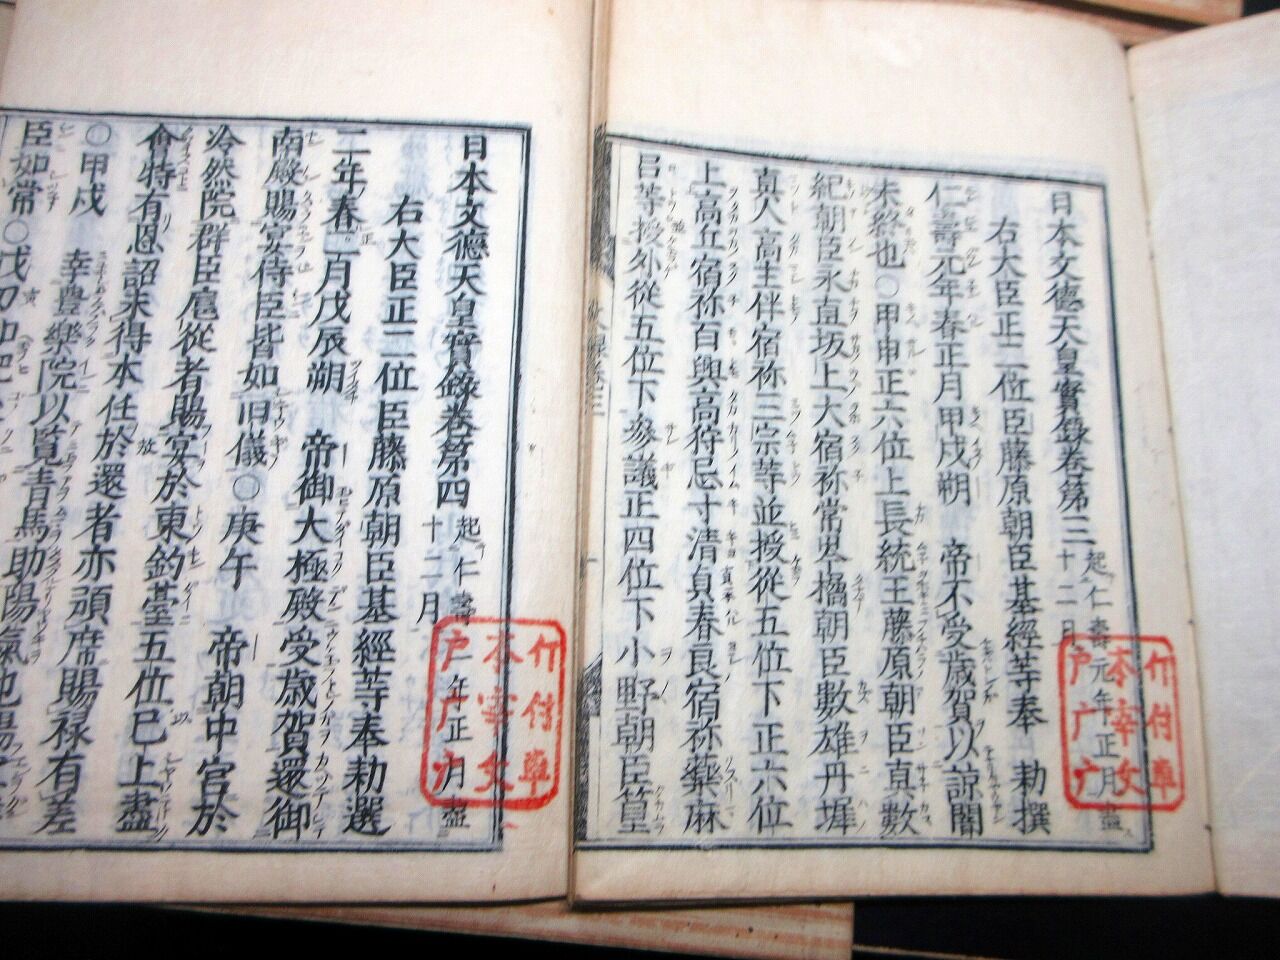 日本文德天皇實錄卷第三 起仁壽元年正月盡十二月
右大臣正二位臣藤原朝臣基經等奉 勅撰
仁壽元年春正月甲戌朔 帝不受歲賀以諒闇
未終也○甲申正六位上長統王藤原朝臣真數
紀朝臣永直坂上大宿祢常岑橘朝臣數雄丹墀
真人高主伴宿祢三宗等並授從五位下正六位
上高丘宿祢百興高狩忌寸清貞春良宿祢藥麻
呂等授外從五位下參議正四位下小野朝臣篁
日本文德天皇實錄卷第四 起仁壽二年正月盡十二月
右大臣正二位臣藤原朝臣基經等奉勅選
二年春正月戊辰朔 帝御大極殿受歲賀還御
南殿賜宴侍臣皆如旧儀○庚午 帝朝中宮於
冷然院群臣扈從者賜宴於東釣臺五位已上盡
會特有恩詔未得本任放還者亦預席賜祿有差
○甲戌 幸豊樂院以覧青馬助陽氣也賜宴
臣如常○戊寅